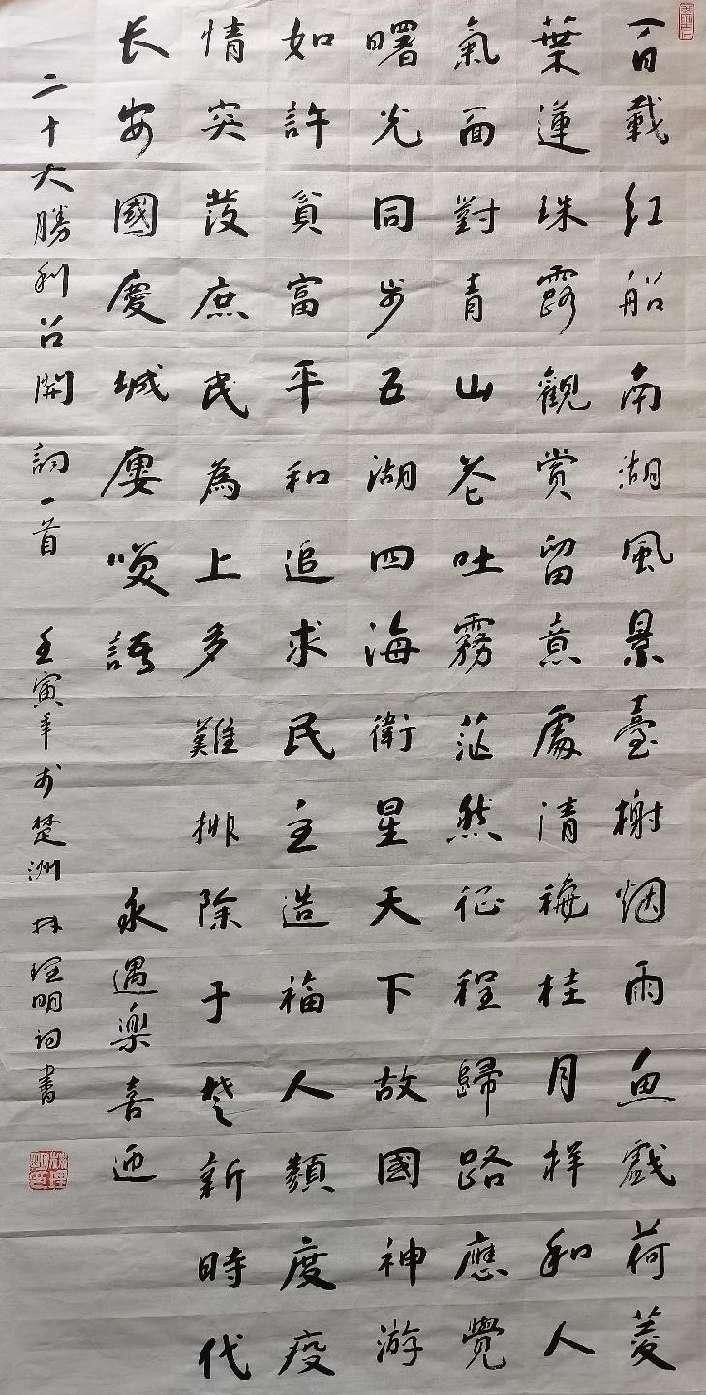 百載紅船南湖風景臺榭烟雨魚戲荷菱
葉蓮珠露觀賞留意處清穐桂月祥和人
氣面對青山谷吐霧茫然征程歸路應覺
曙光同步五湖四海衛星天下故國神游
如許貧富平和追求民主造福人類度疫
情突發庶民為上多難排除于楚新時代
长安國慶城廔喚語 永遇樂喜迎
二十大勝利召開 詞一首 壬寅年於楚洲 林理明詞書